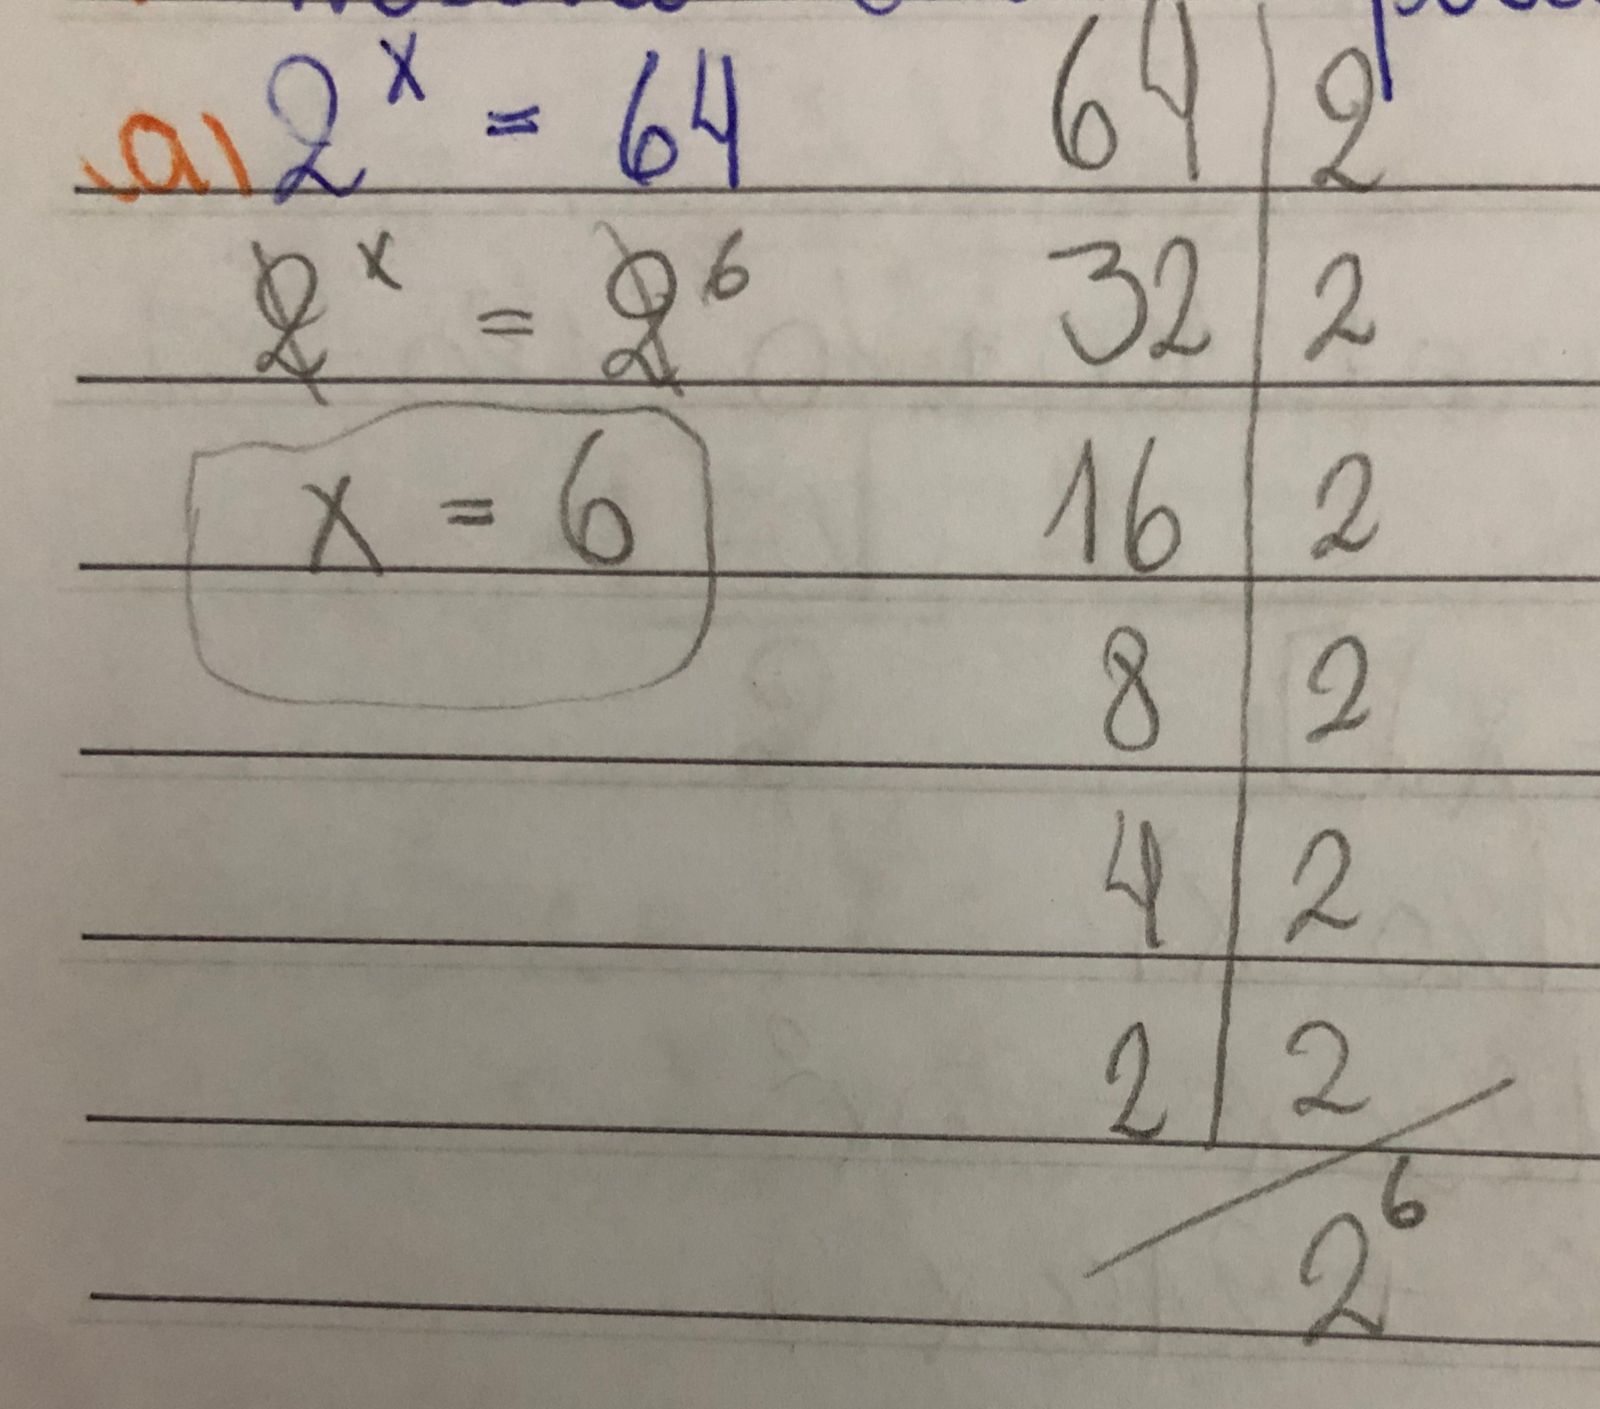 a) 2^x = 64
2^x = 2^6
x = 6
64 | 2
32 | 2
16 | 2
8 | 2
4 | 2
2 | 2
2^6